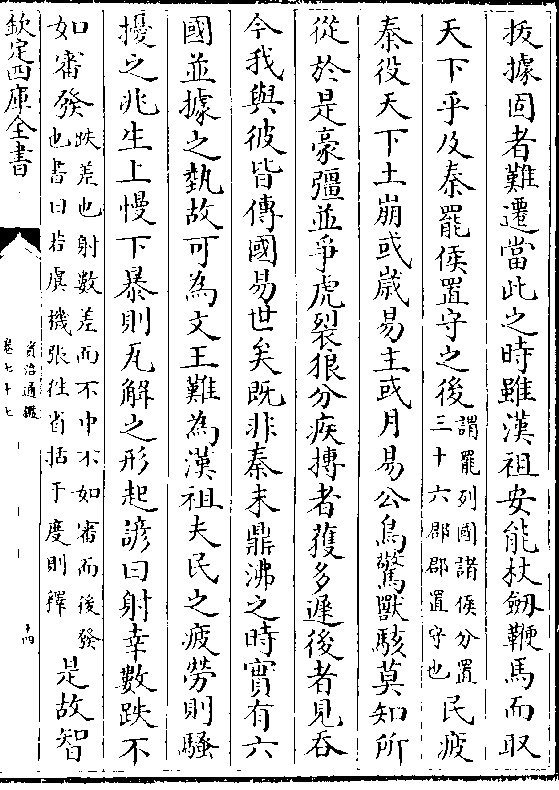 拔據固者難遷當此之時雖漢祖安能杖劒鞭馬而取
天下乎及秦罷侯置守之後謂罷列國諸侯分置三十六郡郡置守也民疲
秦役天下土崩或歲易主或月易公鳥驚獸駭莫知所
從於是豪彊並爭虎裂狼分疾摶者獲多遲後者見吞
今我與彼皆傳國易世矣既非秦末鼎沸之時實有六
國並據之埶故可為文王難為漢祖夫民之疲勞則騷
擾之兆生上慢下暴則瓦解之形起諺曰射幸數跌不
如審發跌差也射數差而不中不如審而後發也書曰若虞機張徃省括于度則釋是故智
欽定四庫全書
資治通鑑
卷七十七
十四